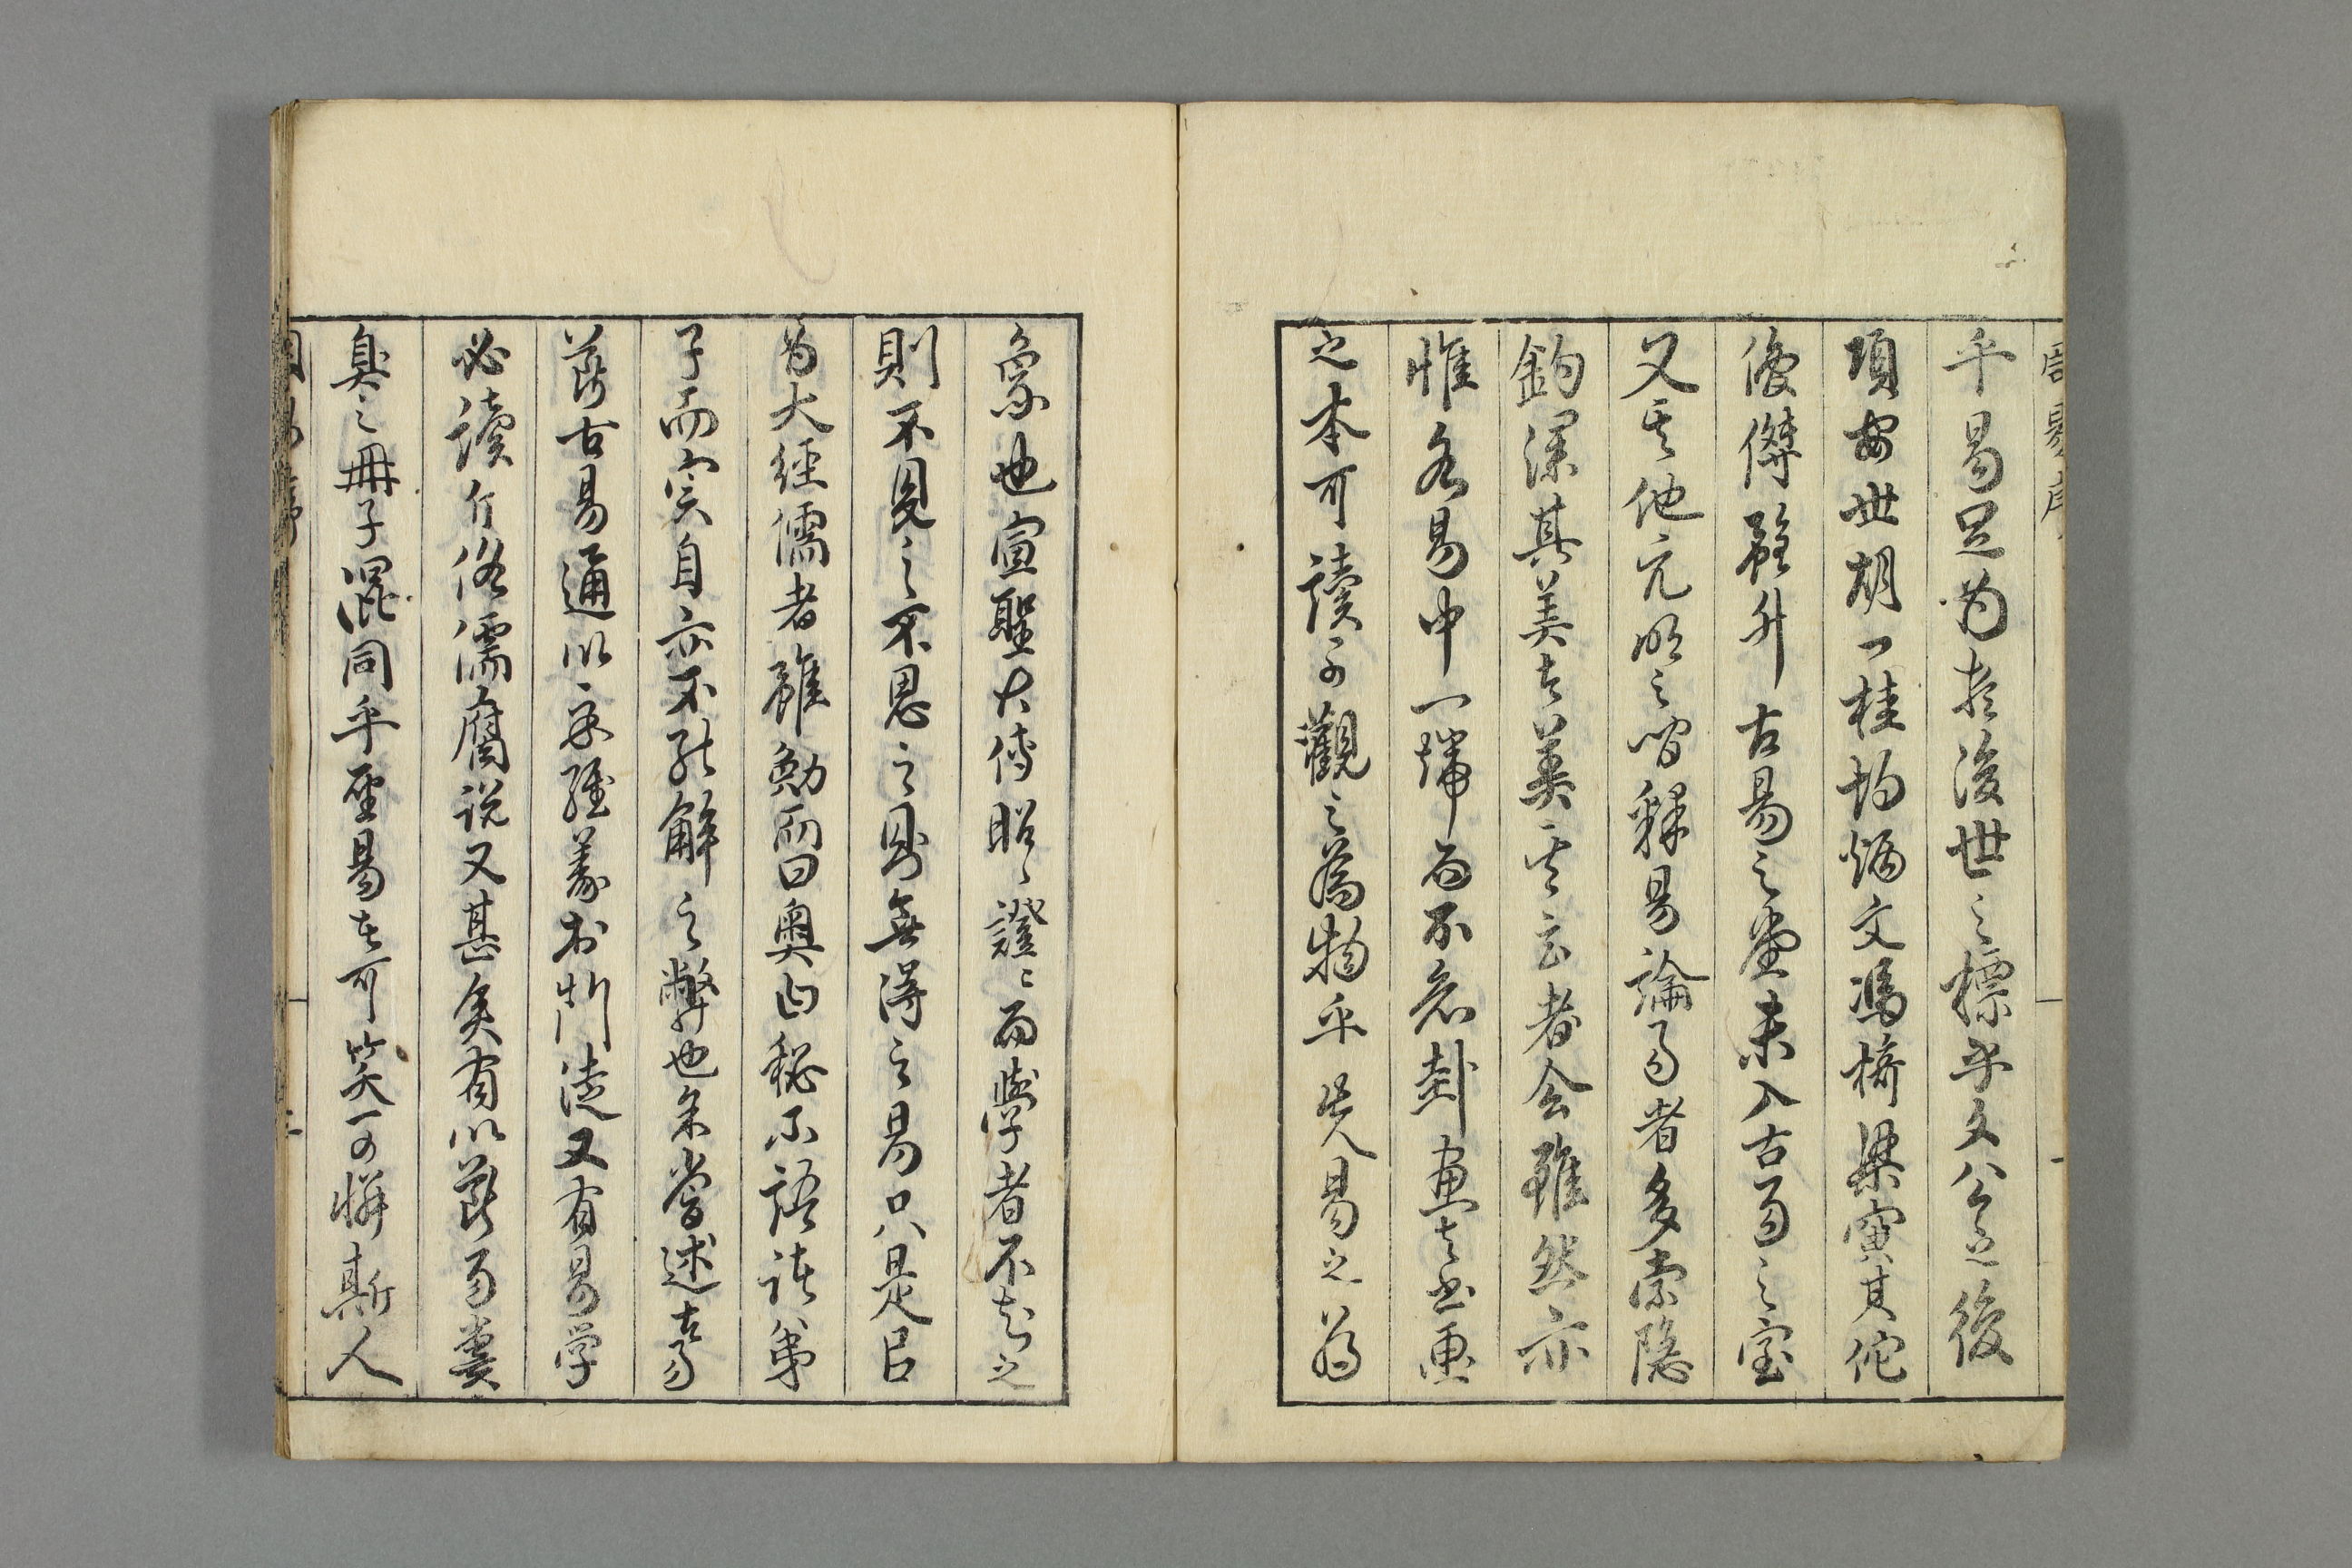 周易序
乎易足為於後世之標乎文公之後
項安世胡一桂均炳文馮椅梁寅其佗
俊傑雖升古易之堂未入古易之室
又其他元明之間釋易論易者多索隱
鈎深其美者美其云者會雖然亦
惟各易中一端而不忘卦畫者也畫
之本可讀不觀之為物乎嗟易之為
象也宣聖大傳昭〻證〻而學者不知之
則不見之不思之則無得之易只是呂
為大經儒者雖勉而曰奧曰秘不語諸弟
子而實自亦不能解之弊也余嘗述古易
筮古易通以示經義於門徒又有易學
必讀斤俗儒腐說又甚矣有以筮易糞
臭之冊子混同乎聖易者可笑可憐斯人